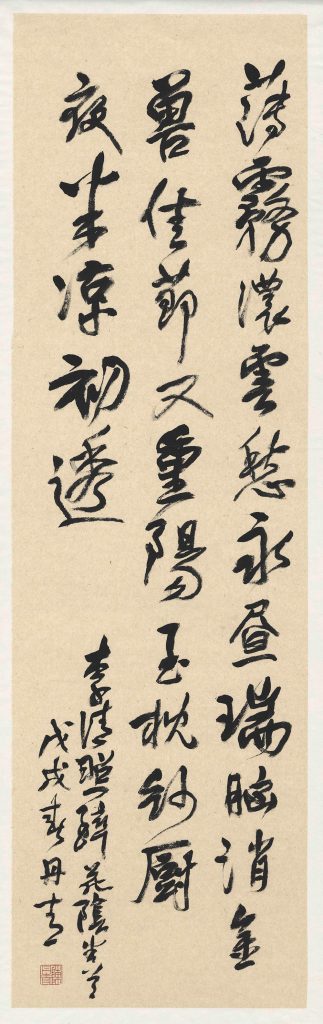 薄霧濃雲愁永昼瑞脳消金
兽佳節又重陽玉枕紗厨
夜半凉初透
李清照醉花陰半首
戊戌春丹青